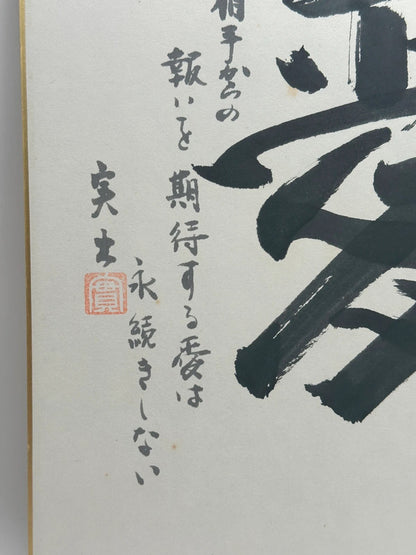 愛
相手からの
報いを
期待する愛は
永続きしない
実士
實